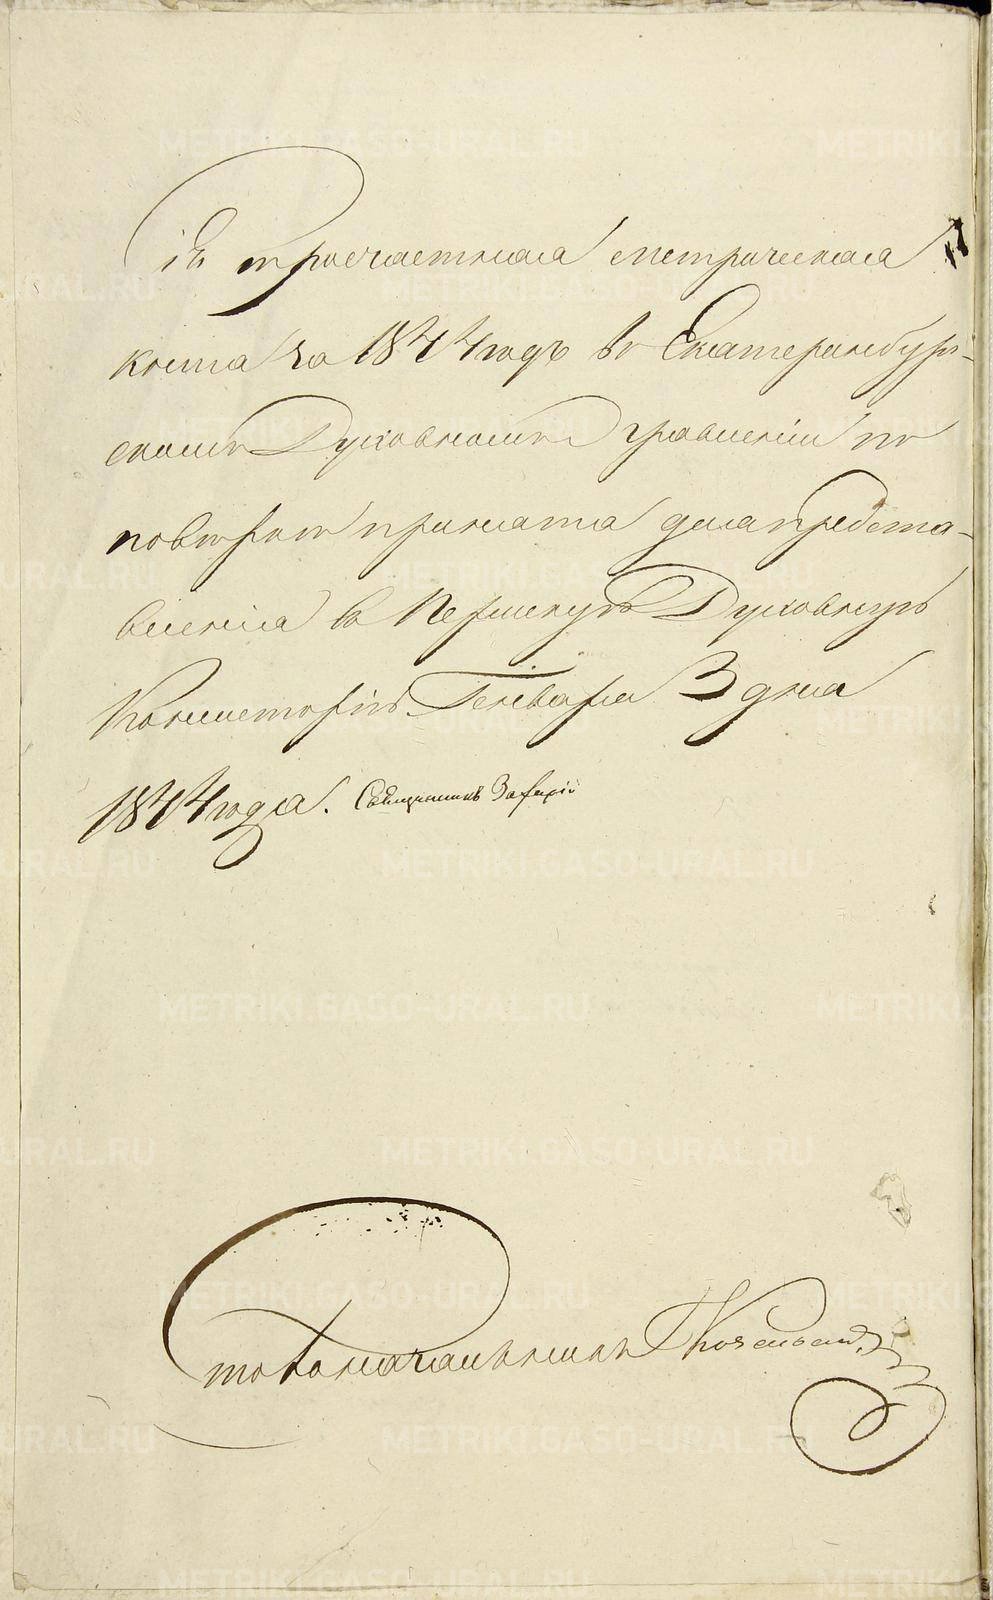 Сія троечастная метрическая
книга за 1844 годъ въ Екатеринбург-
скомъ Духовномъ Правленіи по
повѣркѣ принята для предста-
вленія въ Пермскую Духовную
Консисторію. Генваря 3 дня
1844 года. Священникъ
Столоначальникъ
METRIKI.GASO-URAL.RU